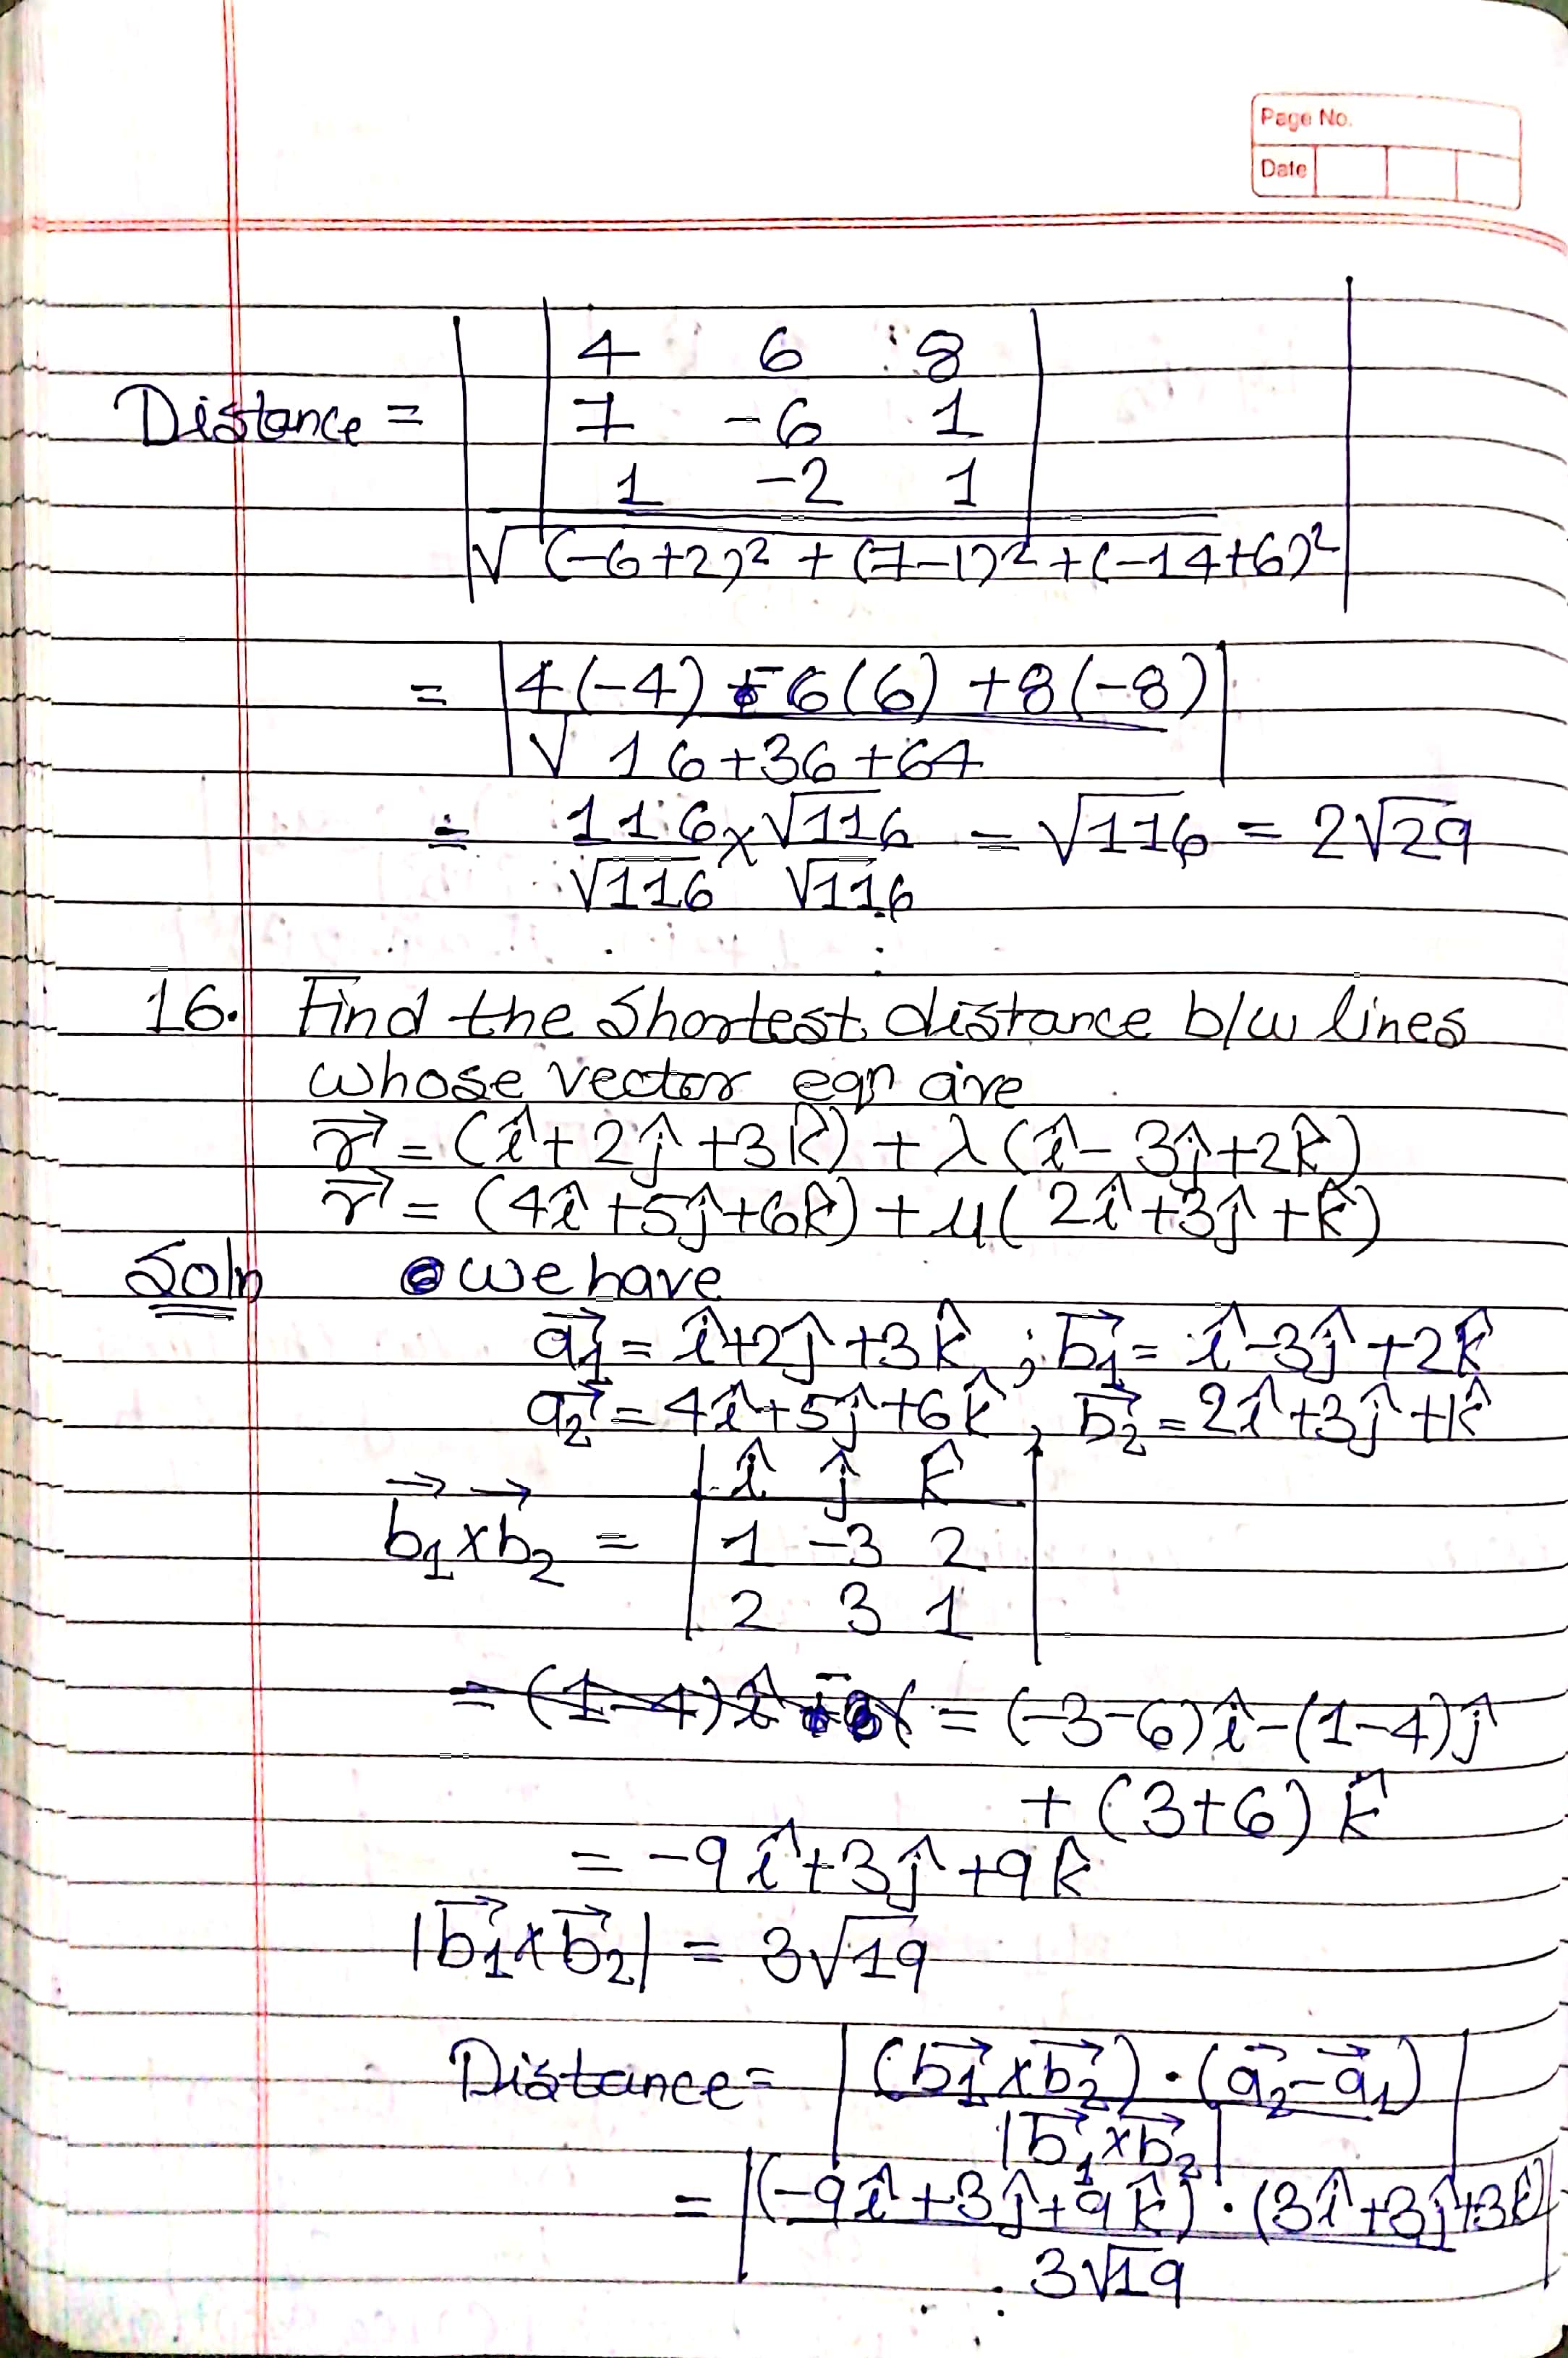 Page No.
Date
4 6 8
Distance = 7 -6 1
1 -2 1
√(-6+2)² + (7-1)² + (-14+6)²
= |4(-4) - 6(6) + 8(-8)|
√16+36+64
= 116 × √116 = √116 = 2√29
√116 √116
16. Find the Shortest distance b/w lines
whose vector eqn are
r⃗ = (î + 2ĵ + 3k̂) + λ(î - 3ĵ + 2k̂)
r⃗ = (4î + 5ĵ + 6k̂) + μ(2î + 3ĵ + k̂)
Soln we have
a⃗₁ = î + 2ĵ + 3k̂ ; b⃗₁ = î - 3ĵ + 2k̂
a⃗₂ = 4î + 5ĵ + 6k̂ , b⃗₂ = 2î + 3ĵ + k̂
î ĵ k̂
b⃗₁ × b⃗₂ = 1 -3 2
2 3 1
= (1-4)î - = (-3-6)î - (1-4)ĵ
+ (3+6)k̂
= -9î + 3ĵ + 9k̂
|b⃗₁ × b⃗₂| = 3√19
Distance = |(b⃗₁ × b⃗₂) · (a⃗₂ - a⃗₁)|
|b⃗₁ × b⃗₂|
= |(-9î + 3ĵ + 9k̂) · (3î + 3ĵ + 3k̂)|
3√19